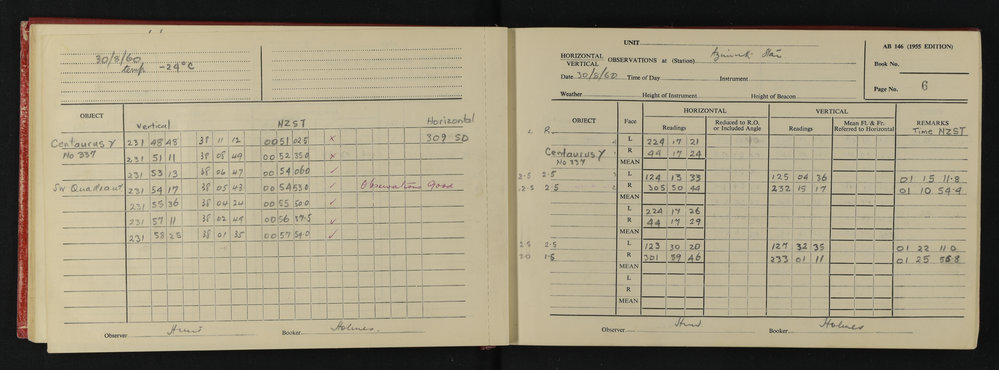 30/8/60
temp -24°C
OBJECT
Vertical NZST Horizontal
Centaurus γ 231 48 48 38 11 12 00 51 02.5 x 309 50
No 337 231 51 11 38 08 49 00 52 35.0 x
231 53 13 38 06 47 00 54 06.0 ✓
SW Quadrant 231 54 17 38 05 43 00 54 53.0 ✓ Observations Good
231 55 36 38 04 24 00 55 50.0 ✓
231 57 11 38 02 49 00 56 57.5 ✓
231 58 25 38 01 35 00 57 54.0 ✓
Observer Hunt Booker Holmes.
UNIT
HORIZONTAL
VERTICAL
OBSERVATIONS at (Station) Azimuth Star
Date 30/8/60 Time of Day Instrument
Weather Height of Instrument Height of Beacon
AB 146 (1955 EDITION)
Book No.
Page No. 6
L R
OBJECT Face HORIZONTAL VERTICAL REMARKS
Readings Reduced to R.O. or Included Angle Readings Mean Fl. & Fr. Referred to Horizontal Time NZST
L 224 17 21
Centaurus γ R 44 17 24
No 337 MEAN
2.5 2.5 L 124 13 33 125 04 36 01 15 11.8
2.5 2.5 R 305 50 44 232 15 17 01 10 54.4
MEAN
L 224 17 26
R 44 17 29
MEAN
2.5 2.5 L 123 30 20 127 32 35 01 22 11.0
3.0 1.5 R 301 59 46 233 01 11 01 25 58.8
MEAN
L
R
MEAN
Observer Hunt Booker Holmes